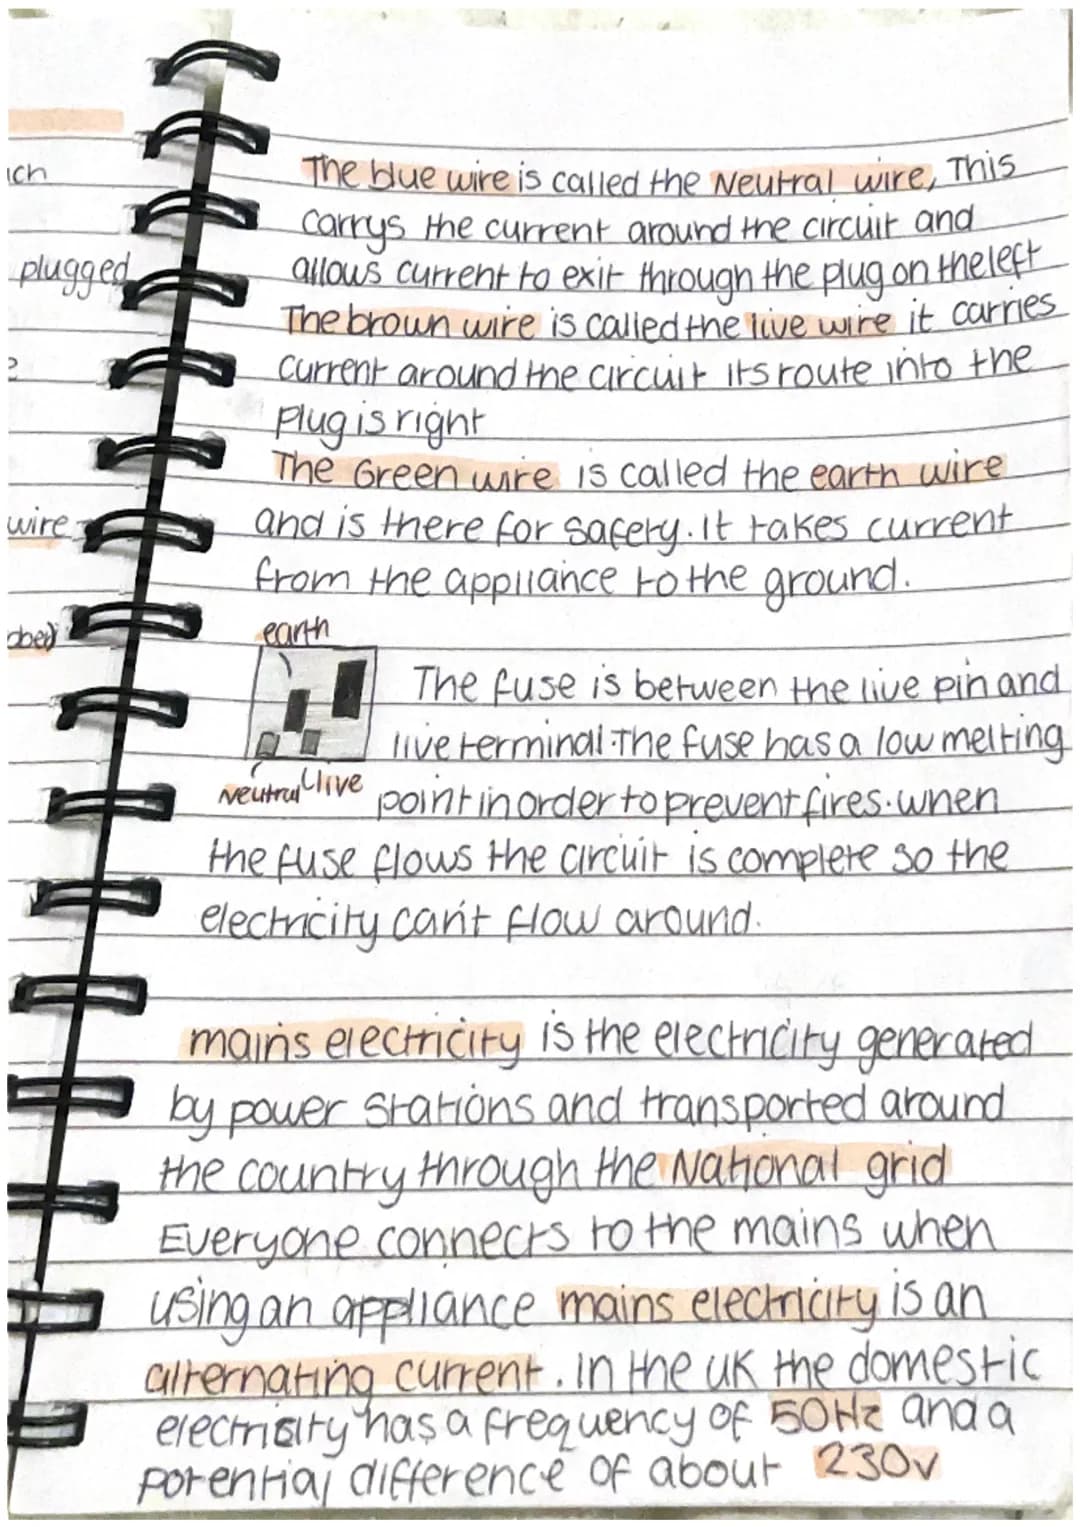 ich
plugged
wire
The blue wire is called the Neutral wire, This
carrys the current around the circuit and
allows current to exit through the plug on the left
The brown wire is called the live wire it carries
current around the circuit its route into the
plug is right
The Green wire is called the earth wire
and is there for safety. It takes current
from the appliance to the ground.
earth
Neutral live
The fuse is between the live pin and
live terminal. The fuse has a low melting
point in order to prevent fires. when
the fuse flows the circuit is complete so the
electricity can't flow around.
mains electricity is the electricity generated
by power stations and transported around
the country through the National grid
Everyone connects to the mains when
using an appliance mains electricity is an
alternating current. in the UK the domestic
electricity has a frequency of 50Hz and a
potential difference of about 230v